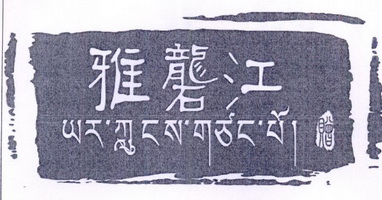 雅礱江
ཡར་ཀླུངས་གཙང་པོ།